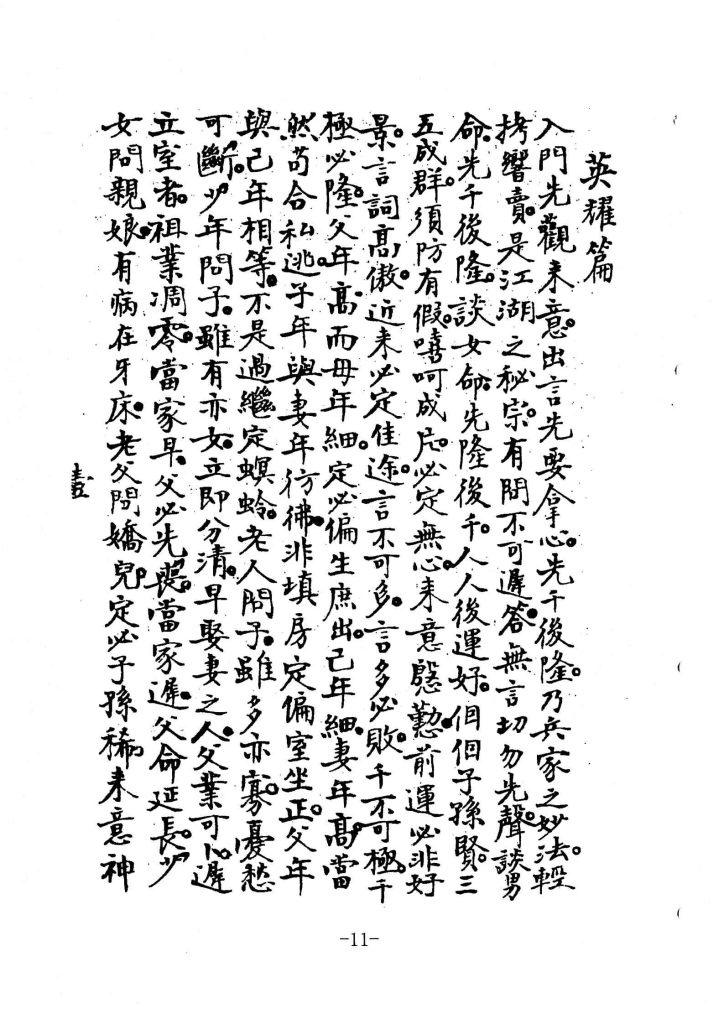 英耀篇
入門先觀來意。出言先要拿心。先千後隆。乃兵家之妙法。輕
拷響賣。是江湖之秘宗。有問不可遲答。無言切勿先聲。談男
命。先千後隆。談女命。先隆後千。人人後運好。個個子孫賢。三
五成群。須防有假。嘻呵成片。必定無心。來意慇懃。前運必非好
景。言詞高傲。近來必定佳途。言不可多。言多必敗。千不可極。千
極必隆。父年高而毋年細。定必偏生庶出。己年細。妻年高。當
然苟合私逃。子年與妻年彷彿。非填房定偏室坐正。父年
與己年相等。不是過繼定螟蛉。老人問子。雖多亦寡。憂愁
可斷。少年問子。雖有亦女。立即分清。早娶妻之人。父業可卜。遲
立室者。祖業凋零。當家早。父必先喪。當家遲。父命延長。少
女問親娘。有病在牙床。老父問嬌兒。定必子孫稀。來意神
-11-